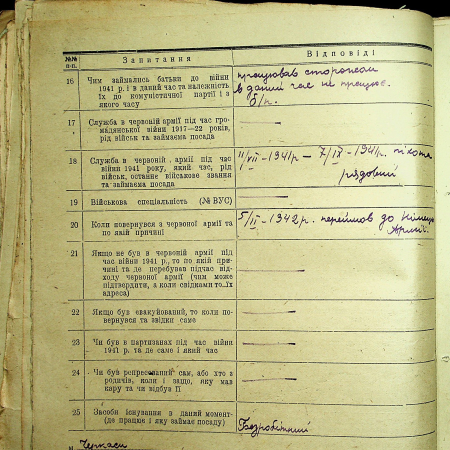 №№ п-п.
Запитання
Відповіді
16
Чим займались батьки до війни
1941 р. і в даний час та належність
їх до комуністичної партії і з
якого часу
працював сторожем
в даний час не працює.
б/п.
17
Служба в червоній армії під час гро-
мадянської війни 1917—22 років,
рід військ та займаєма посада
—
18
Служба в червоній армії під час
війни 1941 року, який час, рід
військ, останнє військове звання
та займаєма посада
11/VII – 1941р – 7/IX – 1941р. піхота
рядовий
19
Військова спеціальність (№ ВУС)
—
20
Коли повернувся з червоної армії та
по якій причині
5/II – 1942 р. перейшов до
Армії
21
Якщо не був в червоній армії під
час війни 1941 р., то по якій при-
чині та де перебував підчас від-
ходу червоної армії (чим може
підтвердити, а коли свідками то їх
адреса)
—
22
Якщо був евакуйований, то коли по-
вернувся та звідки саме
—
23
Чи був в партизанах під час війни
1941 р. та де саме і який час
—
24
Чи був репресований сам, або хто з
родичів, коли і защо, яку мав
кару та чи відбув її
—
25
Засоби існування в даний момент-
(де працює і яку займає посаду)
Безробітний
Черкаси